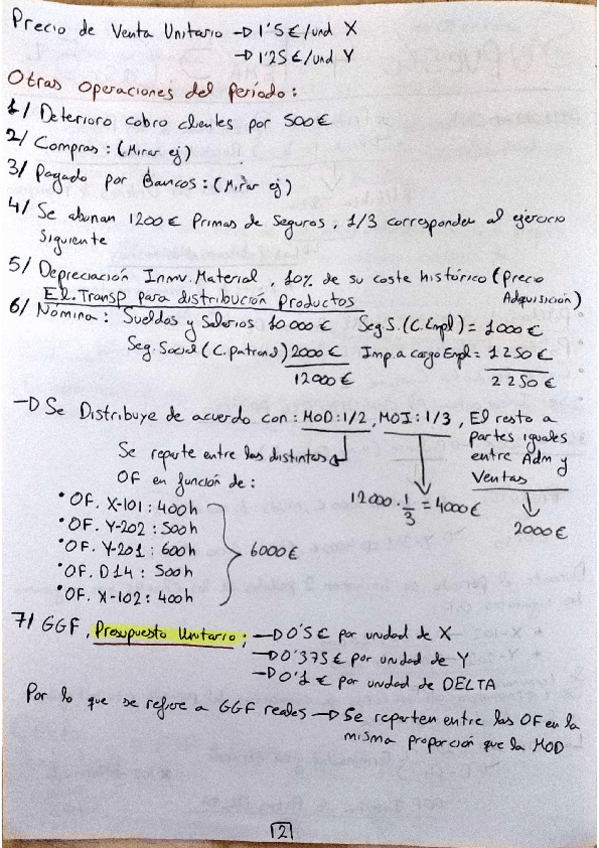 Precio de Venta Unitario → 1'5 €/und X
→ 1'25 €/und Y
Otras operaciones del periodo:
1/ Deterioro cobro clientes por 500 €
2/ Compras: (Mirar ej)
3/ Pagado por Bancos: (Mirar ej)
4/ Se abonan 1200 € Primas de Seguros, 1/3 corresponden al ejercicio
siguiente
5/ Depreciación Inmv. Material, 10% de su coste histórico (Precio
Adquisición)
El. Transp para distribución Productos
6/ Nómina: Sueldos y Salarios 10 000 € Seg S. (C. Empl) = 1000 €
Seg. Social (C. patronal) 2000 € Imp. a cargo Empl = 1250 €
12000 € 2250 €
→ Se Distribuye de acuerdo con: MOD: 1/2, MOI: 1/3, El resto a
partes iguales
entre Adm y
Ventas
Se reparte entre las distintas
OF en función de:
12000 · 1/3 = 4000 €
2000 €
• OF. X-101: 400 h
• OF. Y-202: 500 h
• OF. Y-201: 600 h
• OF. D14: 500 h
• OF. X-102: 400 h
6000 €
7/ GGF, Presupuesto Unitario: → 0'5 € por unidad de X
→ 0'375 € por unidad de Y
→ 0'1 € por unidad de DELTA
Por lo que se refiere a GGF reales → Se reparten entre las OF en la
misma proporción que la MOD
2